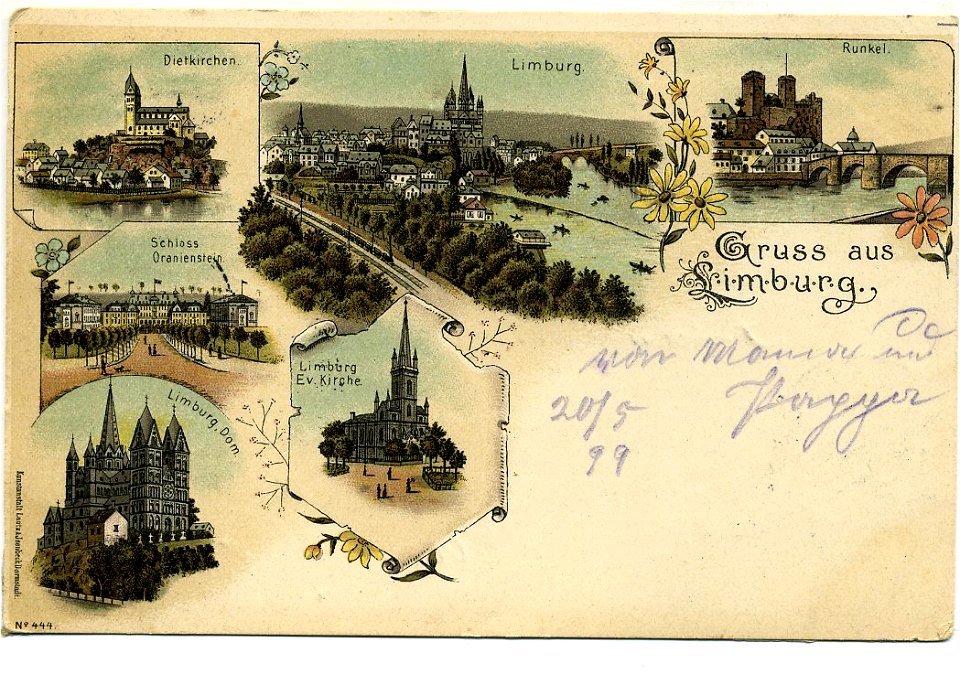 Dietkirchen.
Limburg.
Runkel.
Schloss
Oranienstein.
Gruss aus
Limburg.
Limburg
Ev. Kirche.
Limburg, Dom.
von Mama und
Pappa
20/5
99
Kunstanstalt Lautz & Isenbeck Darmstadt.
No 444.